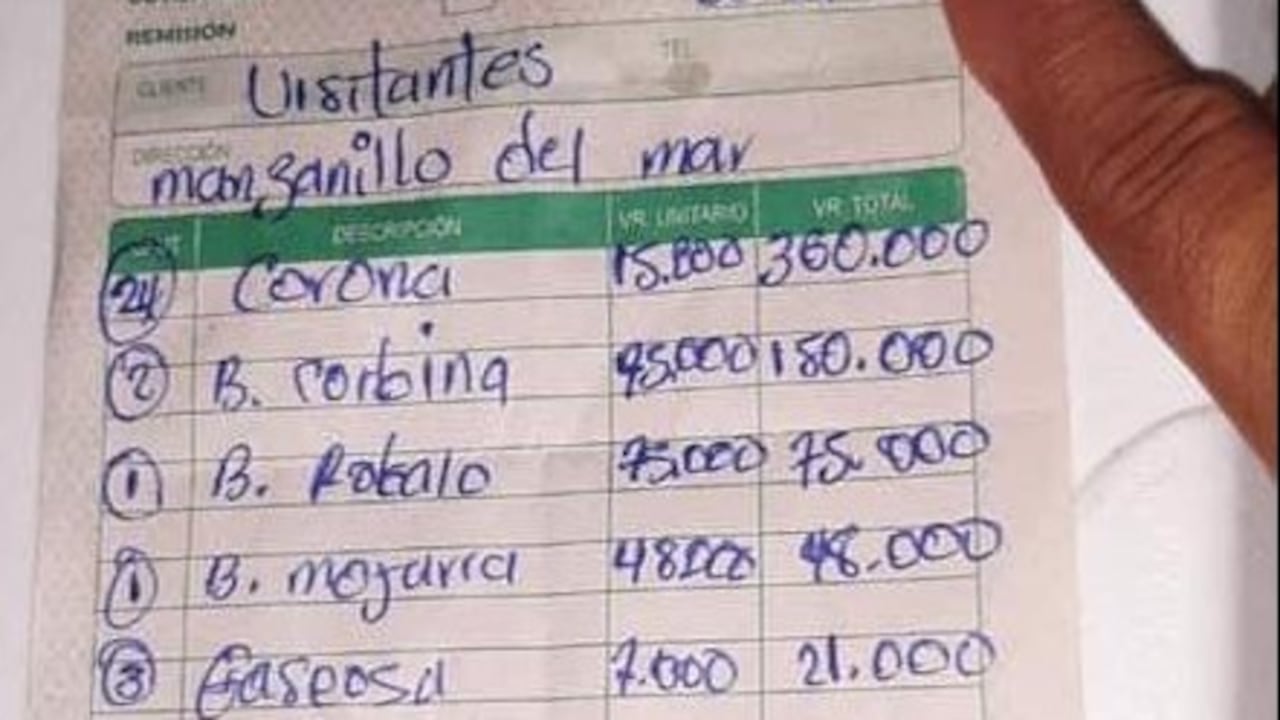 REMISIÓN
CLIENTE Visitantes TEL
DIRECCIÓN manzanillo del mar
DESCRIPCIÓN VR. UNITARIO VR. TOTAL
24 Corona 15.000 360.000
2 B. corbina 150.000
1 B. Robalo 75.000 75.000
1 B. mojarra 48000 48.000
3 Gaseosa 7.000 21.000